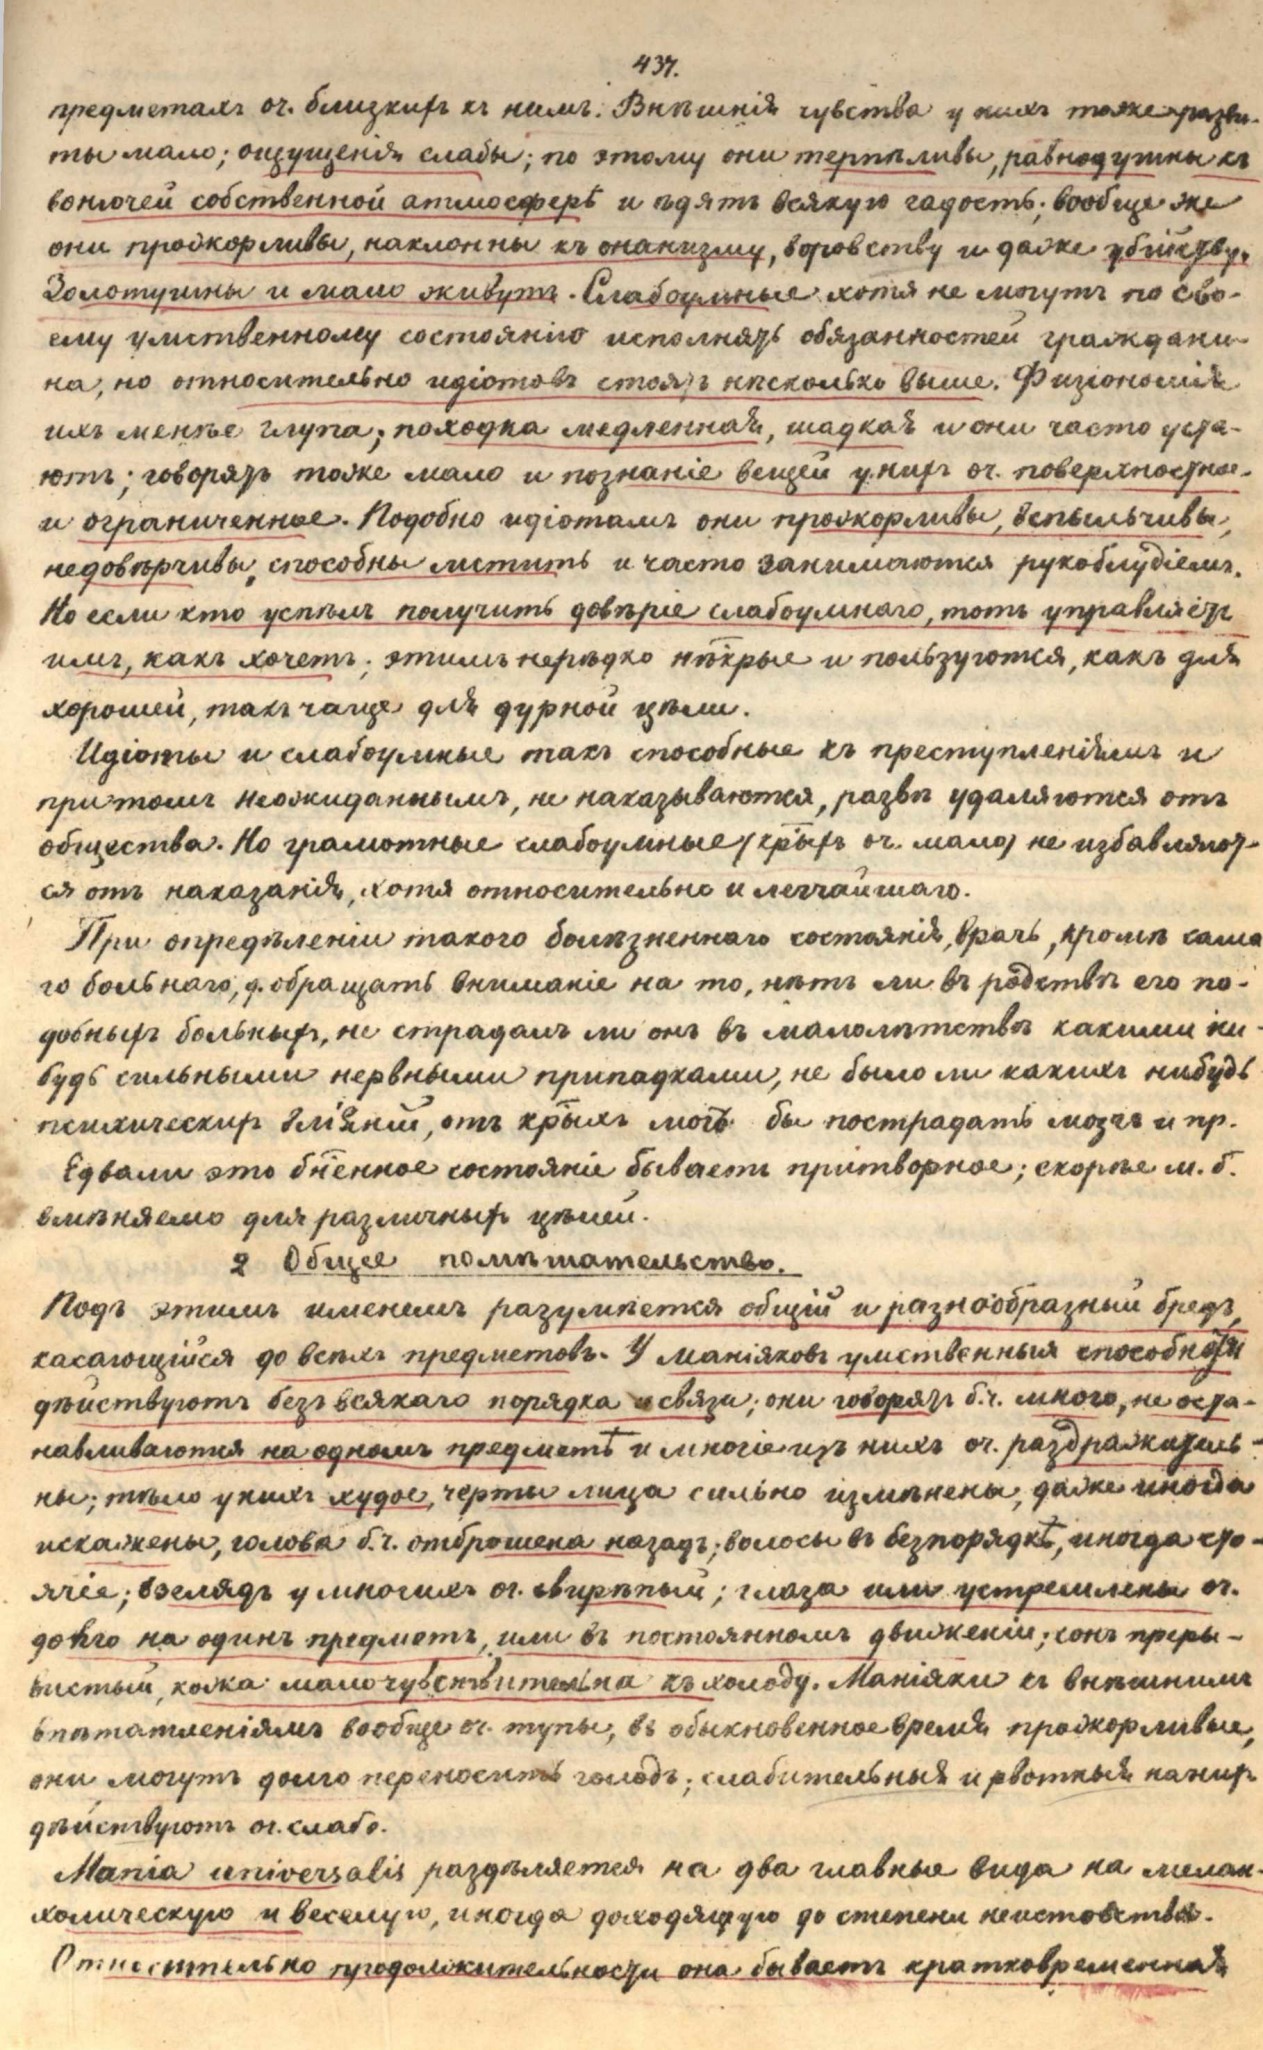 437.
предметахъ оч. близкихъ къ нимъ. Внѣшнія чувства у нихъ тоже разви-
ты мало; ощущенія слабы; по этому они терпѣливы, равнодушны къ
вонючей собственной атмосферѣ и ѣдятъ всякую гадость; вообще же
они прожорливы, наклонны къ онанизму, воровству и даже убійству.
Золотушны и мало живутъ. Слабоумные хотя не могутъ по сво-
ему умственному состоянію исполнять обязанностей граждани-
на, но относительно идіотовъ стоятъ нѣсколько выше. Физіономія
ихъ менѣе глупа; походка медленная, шадкая и они часто уста-
ютъ; говорятъ тоже мало и познаніе вещей у нихъ оч. поверхностное
и ограниченное. Подобно идіотамъ они прожорливы, вспыльчивы,
недовѣрчивы, способны мстить и часто занимаются рукоблудіемъ.
Но если кто успѣлъ получить довѣріе слабоумнаго, тотъ управляетъ
имъ, какъ хочетъ; этимъ нерѣдко нѣкрые и пользуются, какъ для
хорошей, такъ чаще для дурной цѣли.
Идіоты и слабоумные такъ способные къ преступленіямъ и
притомъ неожиданнымъ, не наказываются, развѣ удаляются отъ
общества. Но грамотные слабоумные (крыхъ оч. мало) не избавляют-
ся отъ наказанія, хотя относительно и легчайшаго.
При опредѣленіи такого болѣзненнаго состоянія, врачъ, кромѣ сама
го больнаго, д. обращать вниманіе на то, нѣтъ ли въ родствѣ его по-
добныхъ больныхъ, не страдалъ ли онъ въ малолѣтствѣ какими ни-
будь сильными нервными припадками, не было ли какихъ нибудь
психическихъ вліяній, отъ крыхъ могъ бы пострадать мозгъ и пр.
Едвали это бнѣенное состояніе бываетъ притворное; скорѣе м. б.
вмѣняемо для различныхъ цѣлей.
2 Общее помѣшательство.
Подъ этимъ именемъ разумѣется общій и разнообразный бредъ,
касающійся до всѣхъ предметовъ. У маніяковъ умственныя способности
дѣйствуютъ безъ всякаго порядка и связи; они говорятъ б.ч. много, не оста-
навливаются на одномъ предметѣ и многіе изъ нихъ оч. раздражитель-
ны; тѣло у нихъ худое, черты лица сильно измѣнены, даже иногда
искажены, голова б.ч. отброшена назадъ; волосы въ безпорядкѣ, иногда сто-
ячіе; взглядъ у многихъ оч. свирѣпый; глаза или устремлены оч.
долго на одинъ предметъ, или въ постоянномъ движеніи; сонъ преры-
вистый, кожа мало чувствительна къ холоду. Маніяки къ внѣшнимъ
впѣчатленіямъ вообще оч. тупы, въ обыкновенное время прожорливые,
они могутъ долго переносить голодъ; слабительныя и рвотныя на нихъ
дѣйствуютъ оч. слабо.
Mania universalis раздѣляется на два главные вида на мелан-
холическую и веселую, иногда доходящую до степени неистовства.
Относительно продолжительности она бываетъ кратковременная